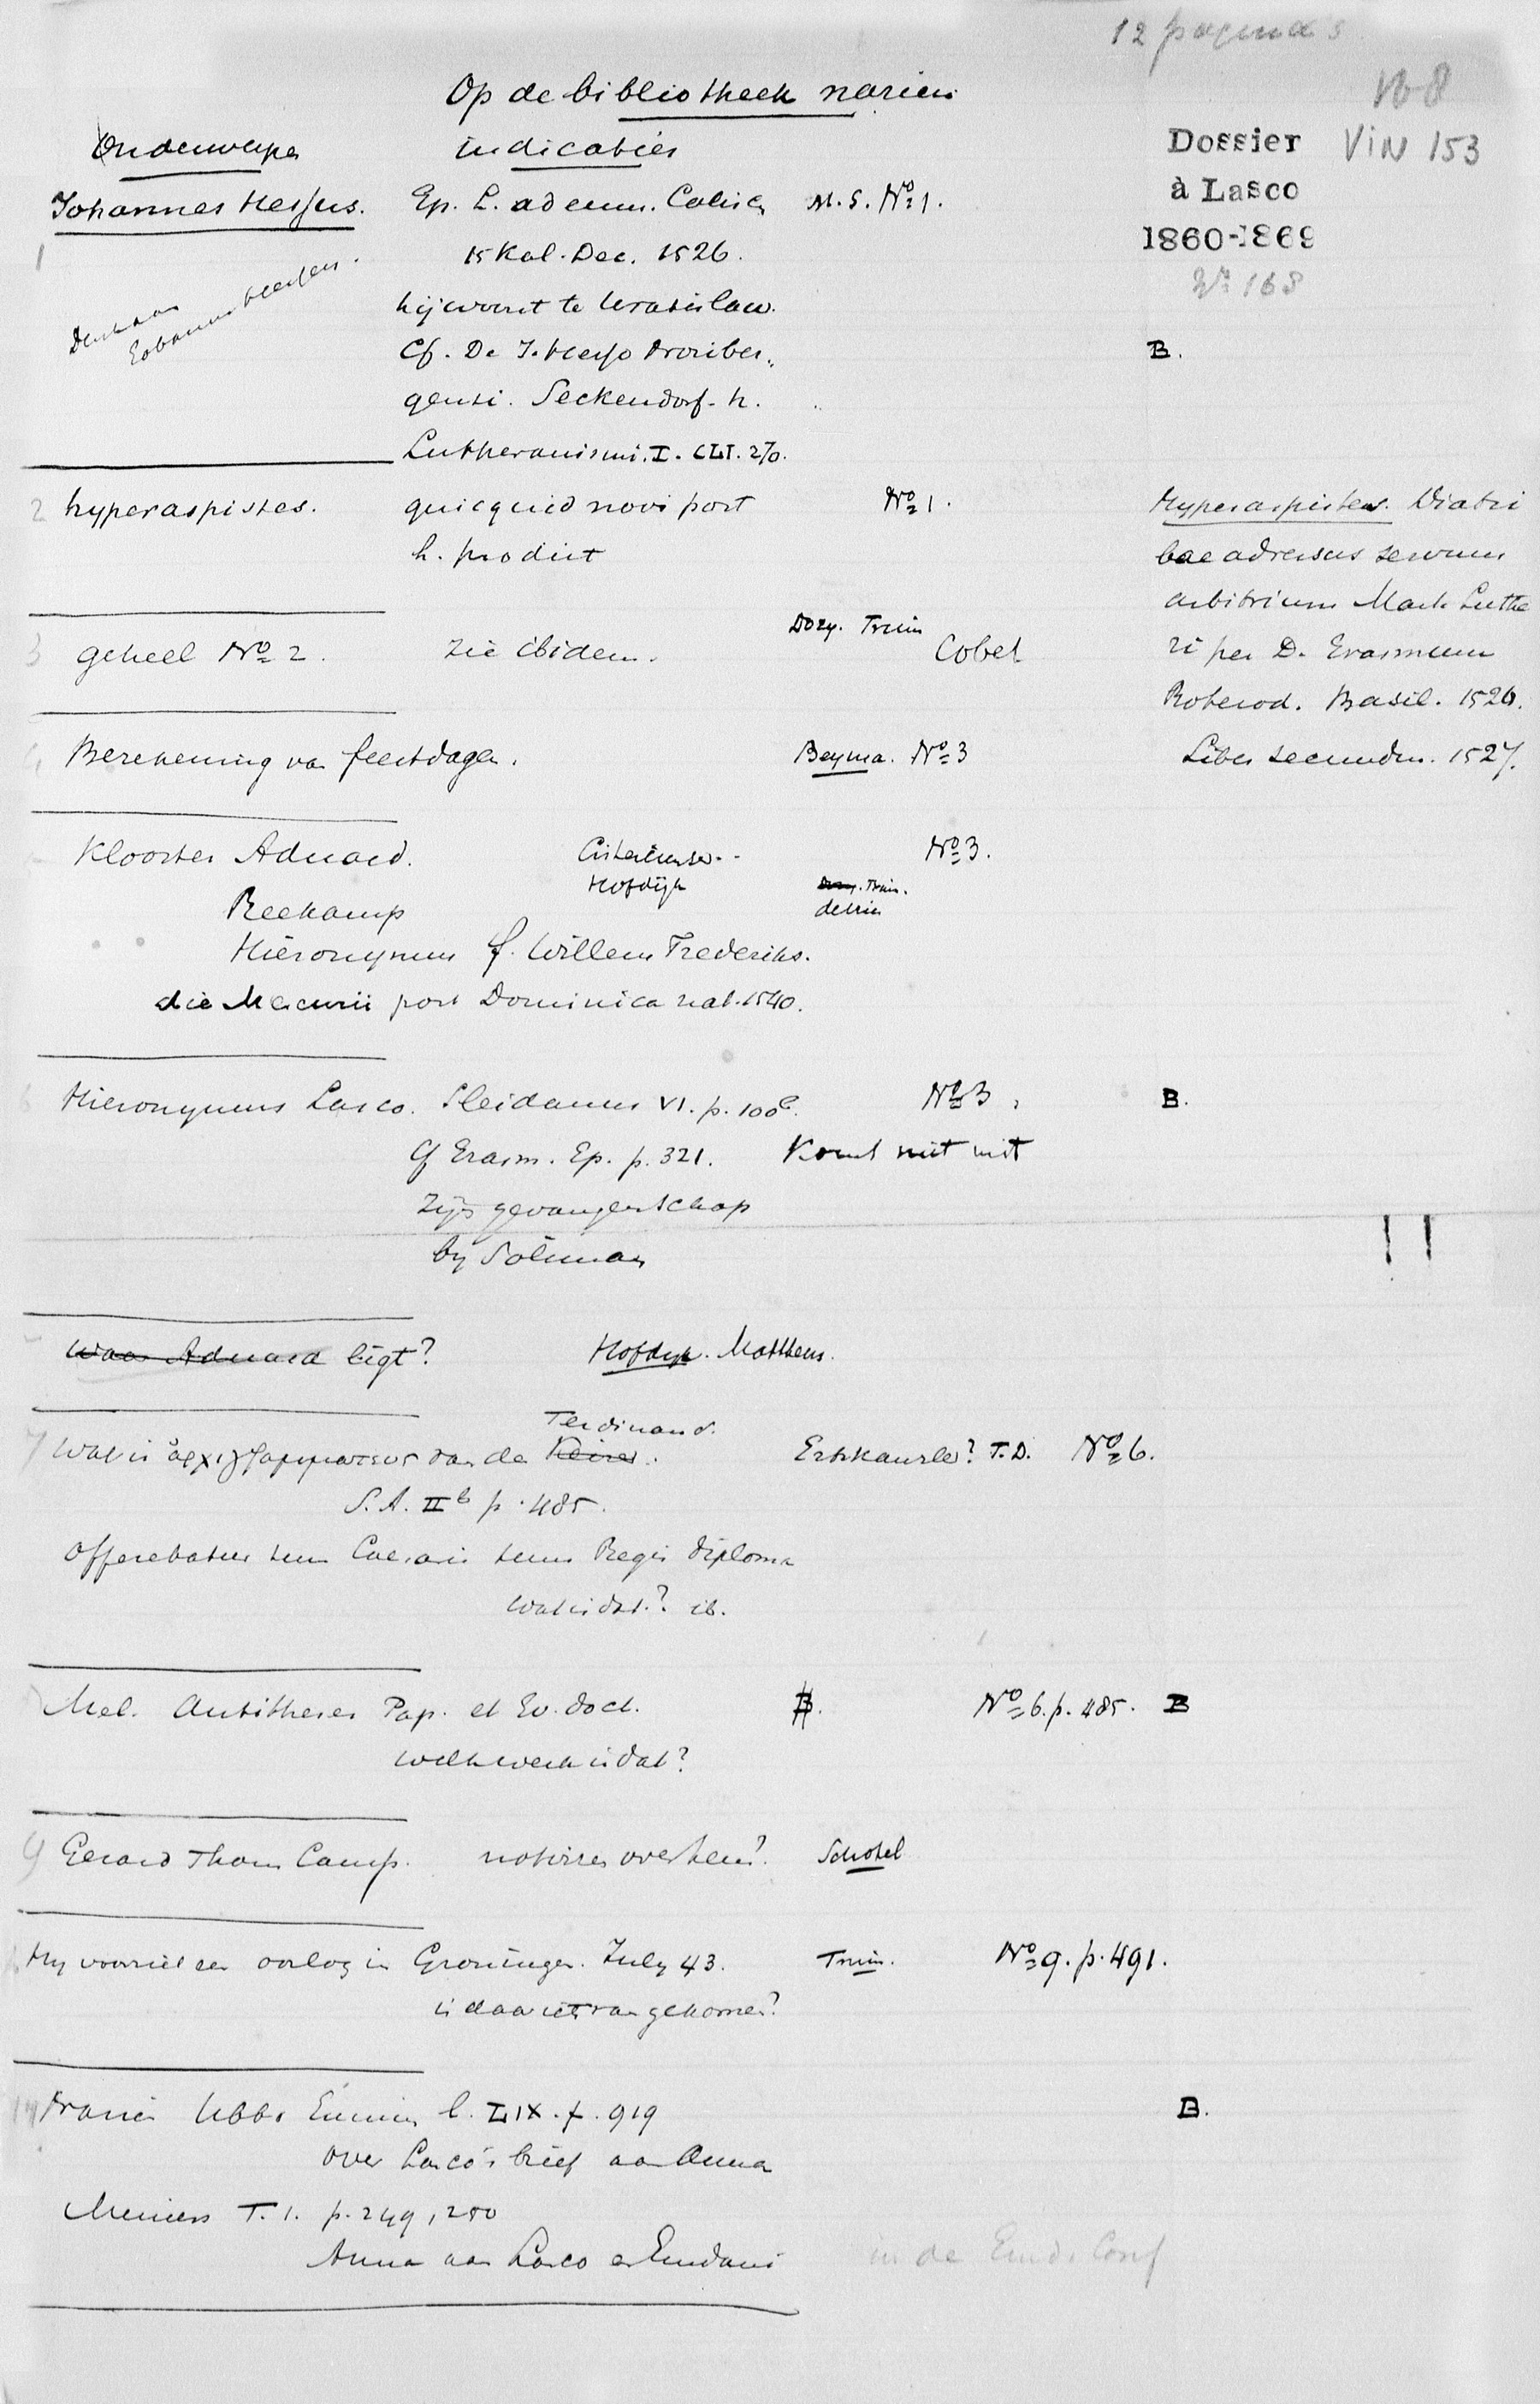 12 pagina's
Op de bibliotheek nazien
Dossier VIN 153
à Lasco
1860-1869
No 168
Onderwerpen indicaties
Johannes Hessus. Ep. L. ad eum. Calisen M.S. No 1.
1 15 Kal. Dec. 1526.
hij woont te Uratislaw.
Denk aan
Eobanus Hessus.
Cf. De J. Hesso Noriber- B.
gensi. Seckendorf. h.
Lutheranismi. I. CLI. 270.
2 hyperaspistes. quicquid novi post No 1.
h. prodiit
Hyperaspistes. Diatri
bae adversus servum
arbitrium Mart. Luthe
ri per D. Erasmum
Roterod. Basil. 1526.
Liber secundus. 1527.
3 geheel No 2. zie ibidem. Dozy. Fruin Cobet
4 Berekening van feestdagen. Beyma. No 3
Klooster Aduard. Cistercienser. No 3.
Hofdijk Dozy. Fruin.
de Vries
Reekamp
Hieronymus f. Willem Frederiks.
die Mercurii post Dominica nat. 1540.
6 Hieronymus Lasco. Sleidanus VI. p. 100 No 3. B.
Cf Erasm. Ep. p. 321. Komt niet uit
Zijn gevangenschap
by Soliman
Waar Aduard ligt? Hofdyk. Matthaeus.
Ferdinand.
7 Wat is ἀρχιγραμματευς van de Keizer. Ertskanselr? T.D. No 6.
S.A. IIb p. 485.
Offerebatur tum Caesaris tum Regis diploma
wat is dat? ib.
Mel. Antitheses Pap. et Ev. doct. B. No 6. p. 485. B
welk werk is dat?
9 Gerard Thom Camp. notities over hem? Schotel
Hy voorziet een oorlog in Groningen. July 43. Fruin. No 9. p. 491.
is daar iets van gekomen?
Nazien Ubbo Emmius l. LIX. f. 919 B.
over Lasco's brief aan Anna
Meiners T.I. p. 249, 250
Anna aan Lasco en Emdani in de Emd. Conf